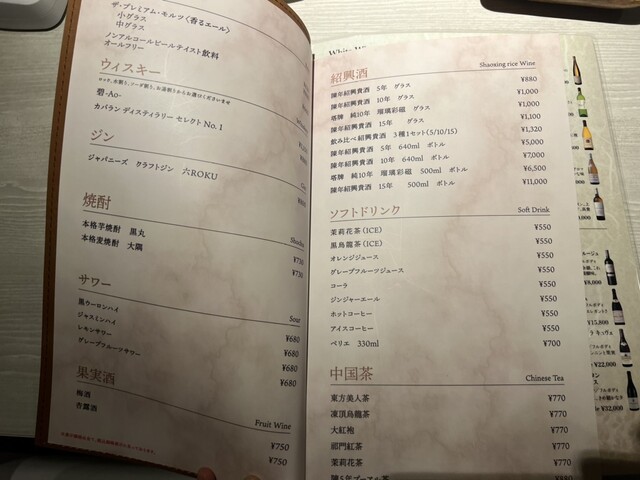 ザ・プレミアム・モルツ〈香るエール〉
小グラス
中グラス
ノンアルコールビールテイスト飲料
オールフリー
ウィスキー
ロック、水割り、ソーダ割り、お湯割りからお選びくださいませ
碧-Ao-
カバラン ディスティラリー セレクト No. 1
ジン
Gin
ジャパニーズ クラフトジン 六ROKU
焼酎
Shochu
本格芋焼酎 黒丸 ¥750
本格麦焼酎 大隅 ¥750
サワー
Sour
黒ウーロンハイ ¥680
ジャスミンハイ ¥680
レモンサワー ¥680
グレープフルーツサワー ¥680
果実酒
Fruit Wine
梅酒 ¥750
杏露酒 ¥750
紹興酒 Shaoxing rice Wine
陳年紹興貴酒 5年 グラス ¥880
陳年紹興貴酒 10年 グラス ¥1,000
塔牌 純10年 瑠璃彩磁 グラス ¥1,000
陳年紹興貴酒 15年 グラス ¥1,100
飲み比べ紹興貴酒 3種1セット(5/10/15) ¥1,320
陳年紹興貴酒 5年 640ml ボトル ¥5,000
陳年紹興貴酒 10年 640ml ボトル ¥7,000
塔牌 純10年 瑠璃彩磁 500ml ボトル ¥6,500
陳年紹興貴酒 15年 500ml ボトル ¥11,000
ソフトドリンク Soft Drink
茉莉花茶 (ICE) ¥550
黒烏龍茶 (ICE) ¥550
オレンジジュース ¥550
グレープフルーツジュース ¥550
コーラ ¥550
ジンジャーエール ¥550
ホットコーヒー ¥550
アイスコーヒー ¥550
ペリエ 330ml ¥700
中国茶 Chinese Tea
東方美人茶 ¥770
凍頂烏龍茶 ¥770
大紅袍 ¥770
祁門紅茶 ¥770
茉莉花茶 ¥770
陳5年プーアル茶 ¥880